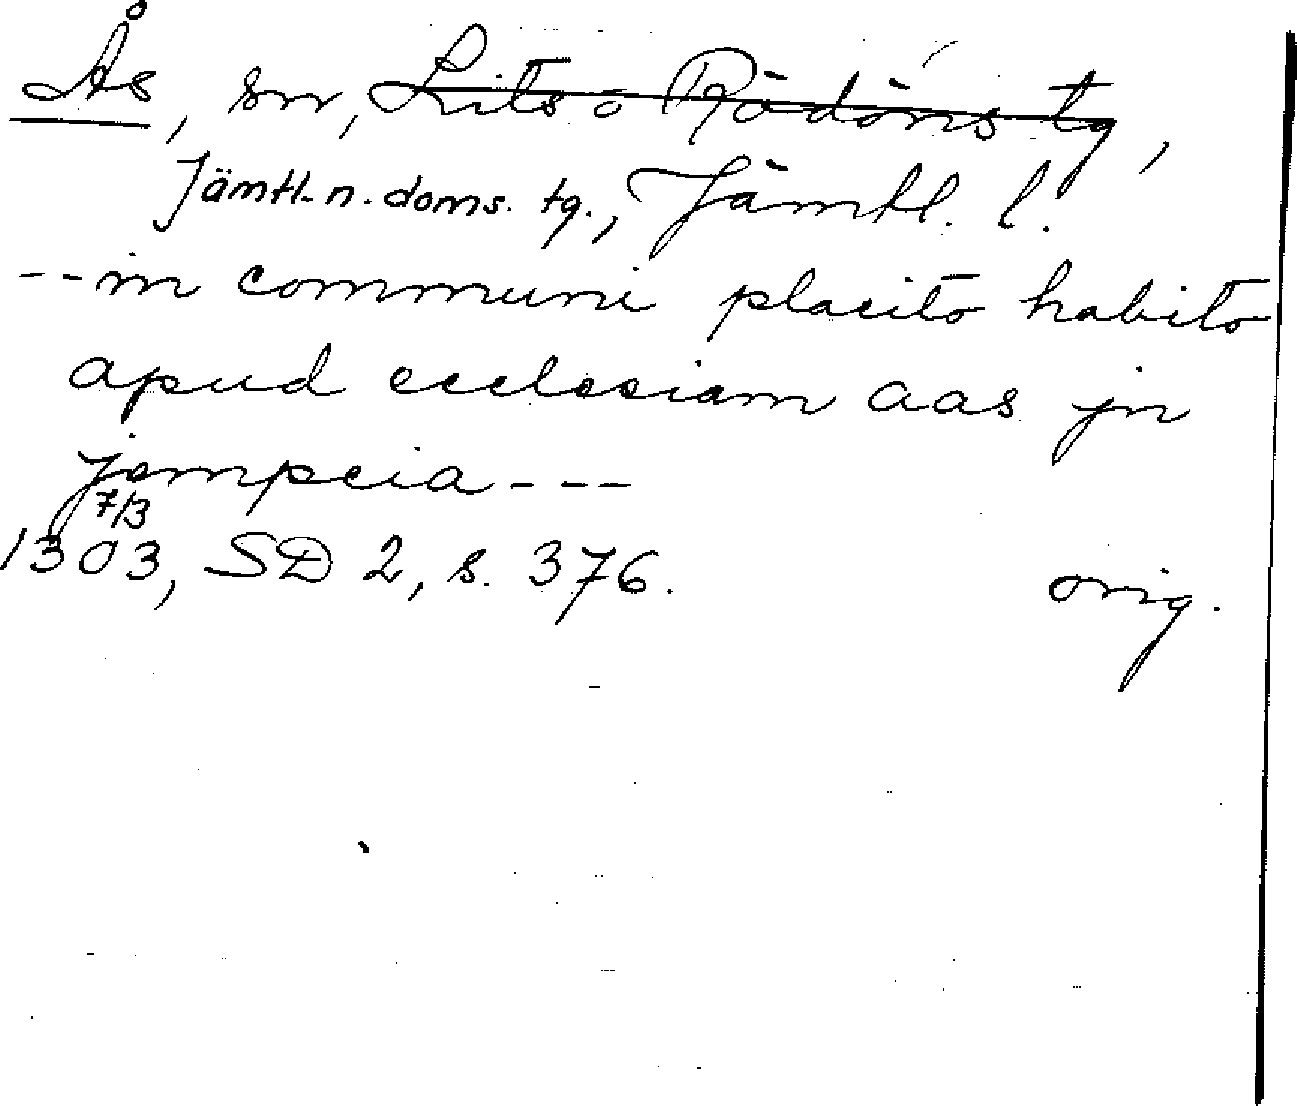 Ås, sn, Lits o Rödöns tg,
Jämtl. n. doms. tg., Jämtl. l.
--in communi placito habito
apud ecclesiam aas jn
jempcia---
7/3
1303, SD 2, s. 376. orig.